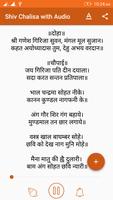 Shiv Chalisa with Audio
॥दोहा॥
श्री गणेश गिरिजा सुवन, मंगल मूल सुजान।
कहत अयोध्यादास तुम, देहु अभय वरदान॥
॥चौपाई॥
जय गिरिजा पति दीन दयाला।
सदा करत सन्तन प्रतिपाला॥
भाल चन्द्रमा सोहत नीके।
कानन कुण्डल नागफनी के॥
अंग गौर शिर गंग बहाये।
मुण्डमाल तन छार लगाये॥
वस्त्र खाल बाघम्बर सोहे।
छवि को देख नाग मुनि मोहे॥
मैना मातु की ह्वै दुलारी।
बाम अंग सोहत छवि न्यारी॥